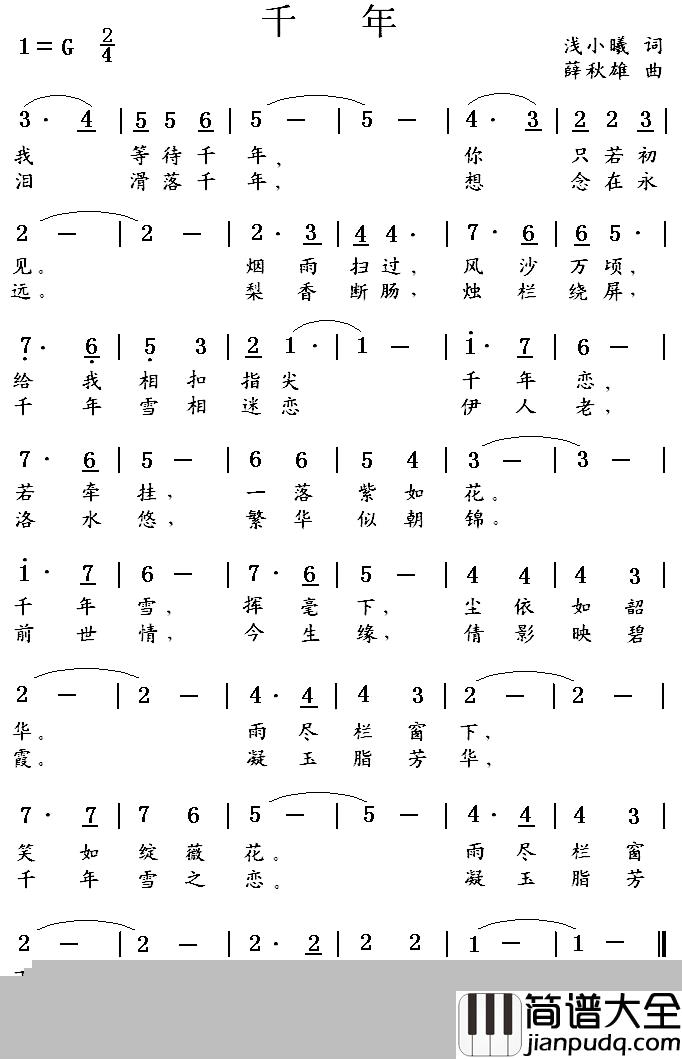 千 年
1=G 2/4
浅小曦 词
薛秋雄 曲
3· 4 | 5 5 6 | 5 － | 5 － | 4· 3 | 2 2 3 |
我 等待千 年, 你 只若初
泪 滑落千 年, 想 念在永
2 － | 2 － | 2· 3 | 4 4· | 7· 6 | 6 5· |
见。 烟雨 扫过, 风沙 万顷,
远。 梨香 断肠, 烛栏 绕屏,
7· 6 | 5 3 | 2 1· | 1 － | 1· 7 | 6 － |
给 我 相 扣 指 尖 千 年 恋,
千 年 雪 相 迷 恋 伊 人 老,
7· 6 | 5 － | 6 6 | 5 4 | 3 － | 3 － |
若 牵 挂, 一 落 紫 如 花。
洛 水 悠, 繁 华 似 朝 锦。
1· 7 | 6 － | 7· 6 | 5 － | 4 4 | 4 3 |
千 年 雪, 挥 毫 下, 尘 依 如 韶
前 世 情, 今 生 缘, 倩 影 映 碧
2 － | 2 － | 4· 4 | 4 3 | 2 － | 2 － |
华。 雨 尽 栏 窗 下,
霞。 凝 玉 脂 芳 华,
7· 7 | 7 6 | 5 － | 5 － | 4· 4 | 4 3 |
笑 如 绽 薇 花。 雨 尽 栏 窗
千 年 雪 之 恋。 凝 玉 脂 芳
2 － | 2 － | 2· 2 | 2 2 | 1 － | 1 － ‖
简谱大全
jianpudq.com